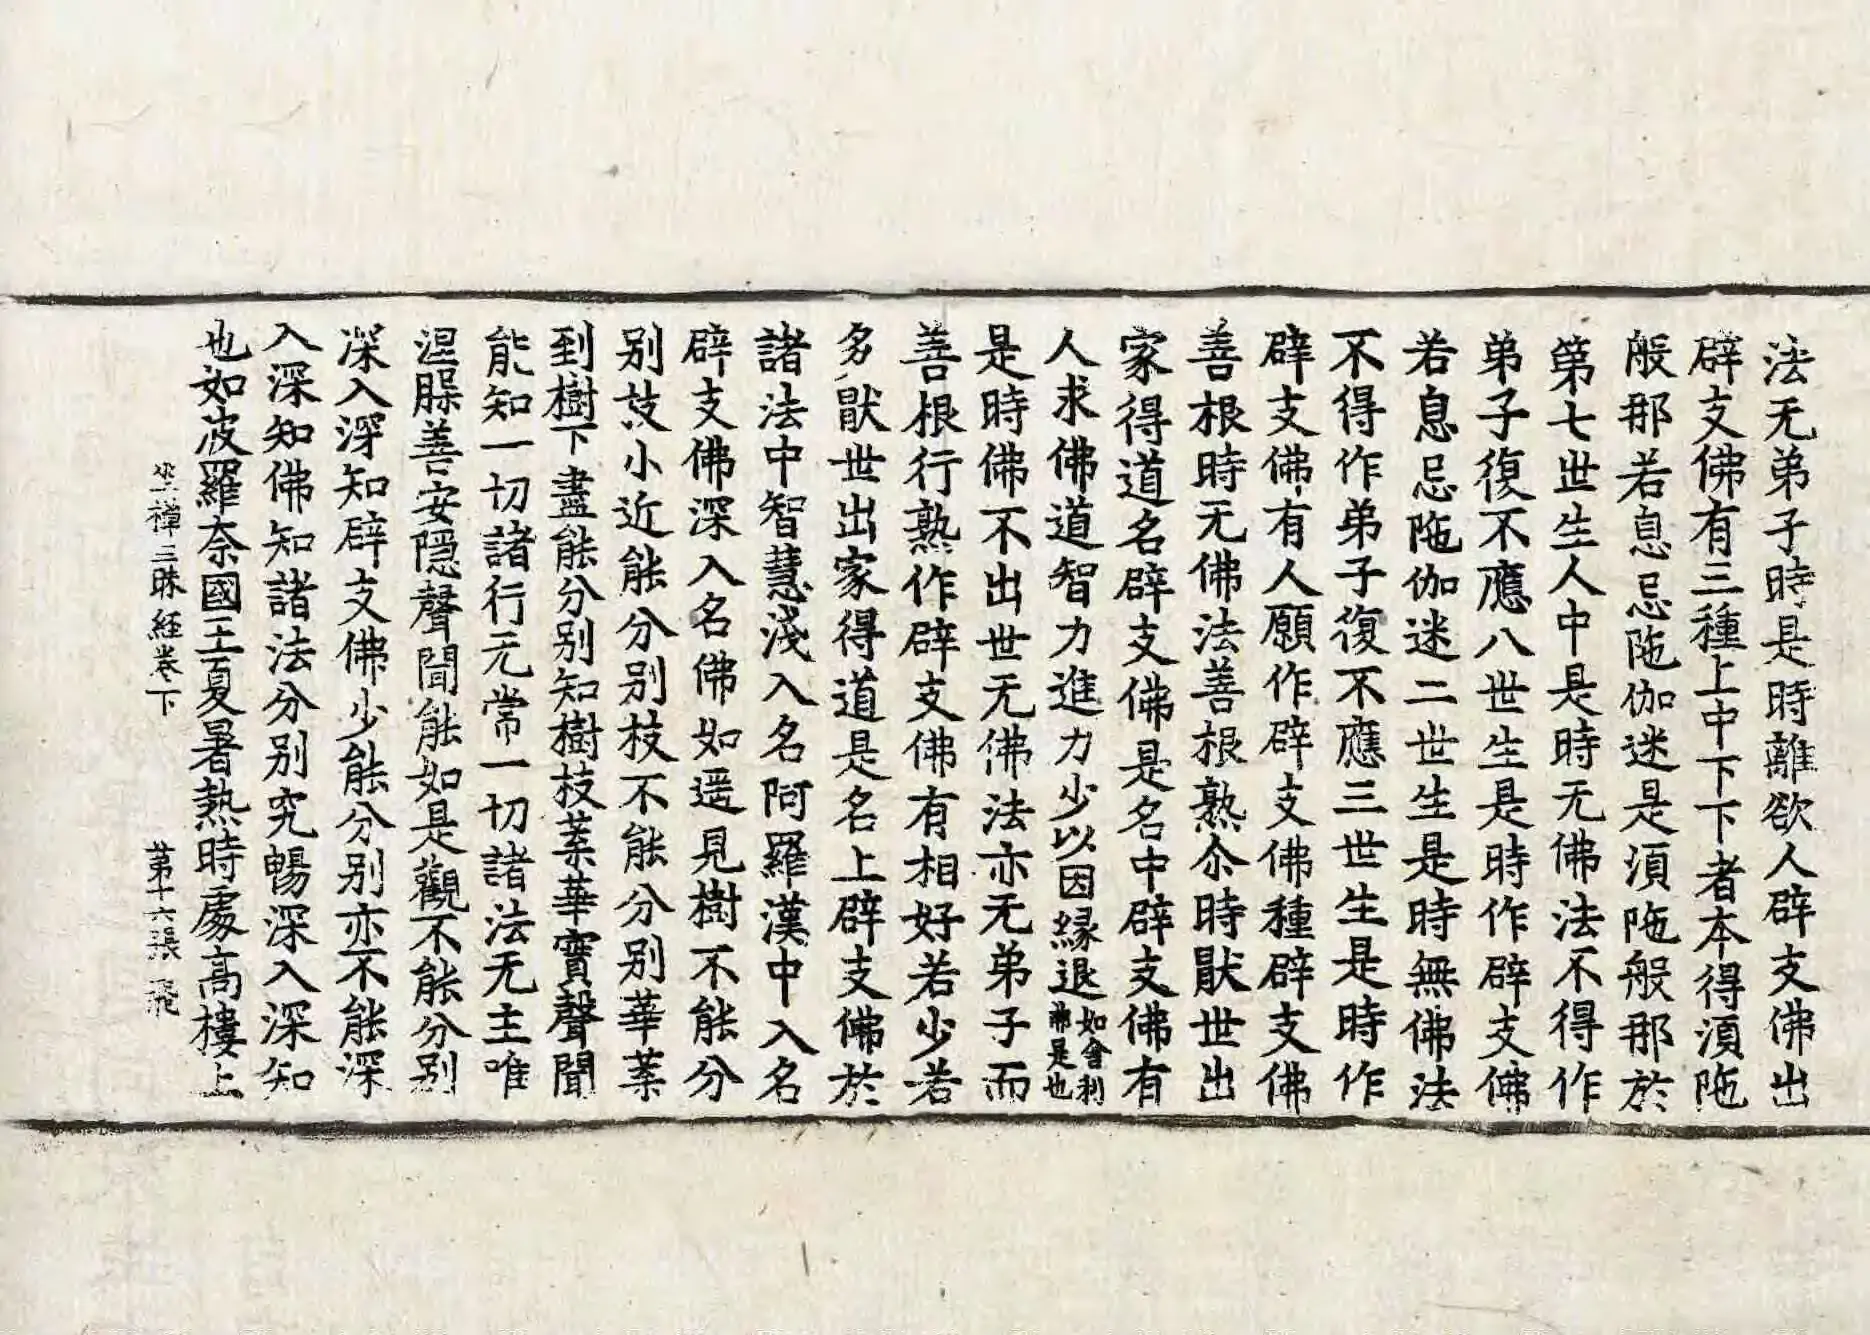 法无弟子時是時離欲人辟支佛出
辟支佛有三種上中下下者本得湏陁
般那若息忌陁伽迷是湏陁般那於
第七世生人中是時无佛法不得作
弟子復不應八世生是時作辟支佛
若息忌陁伽迷二世生是時無佛法
不得作弟子復不應三世生是時作
辟支佛有人願作辟支佛種辟支佛
善根時无佛法善根熟尒時猒世出
家得道名辟支佛是名中辟支佛有
人求佛道智力進力少以因緣退如舍利弗是也
是時佛不出世无佛法亦无弟子而
善根行熟作辟支佛有相好若少若
多猒世出家得道是名上辟支佛於
諸法中智慧淺入名阿羅漢中入名
辟支佛深入名佛如遥見樹不能分
別枝小近能分別枝不能分別華葉
到樹下盡能分別知樹枝葉華實聲聞
能知一切諸行无常一切諸法无主唯
涅槃善安隱聲聞能如是觀不能分別
深入深知辟支佛少能分別亦不能深
入深知佛知諸法分別究暢深入深知
也如波羅奈國王夏暑熱時處高樓上
坐禪三昧經卷下 第十六張 飛